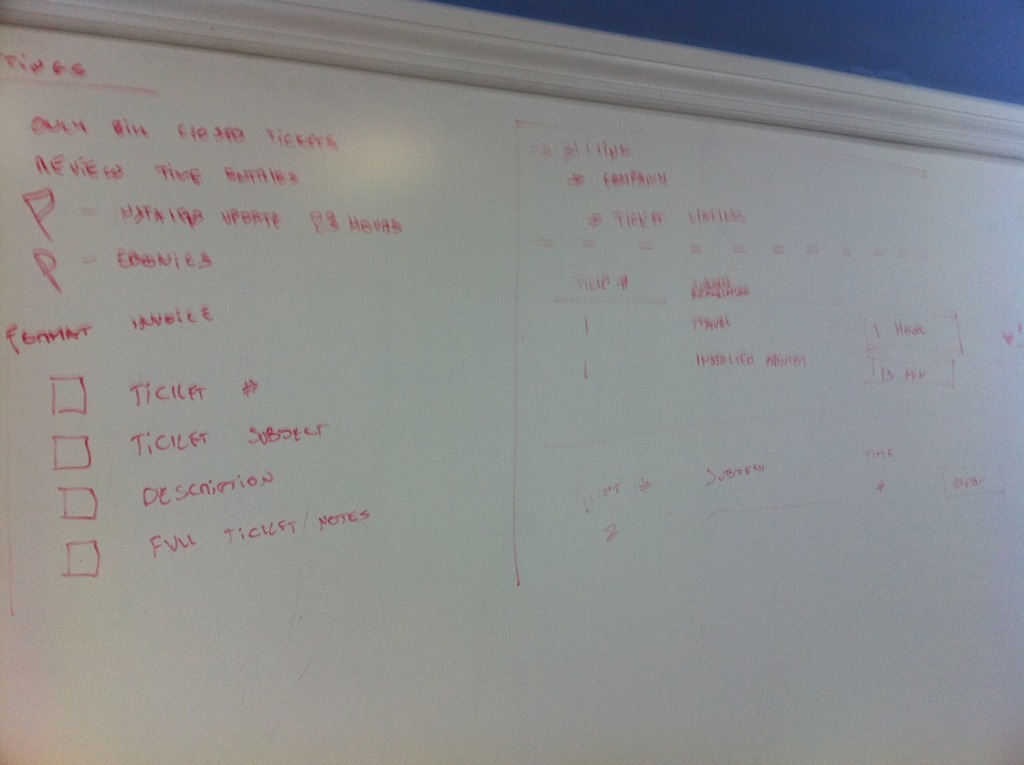 TIMES
ONLY BILL CLOSED TICKETS
REVIEW TIME ENTRIES
= INSTALLED UPDATE 23 HOURS
= EBONICS
FORMAT INVOICE
TICKET #
TICKET SUBJECT
DESCRIPTION
FULL TICKET / NOTES
COMPANY
TICKET LISTING
= = = = = = = = = = =
TICKET #
1 TRAVEL 1 HOUR
1 INSTALLED 15 MIN
TICKET # SUBJECT TIME
2 #